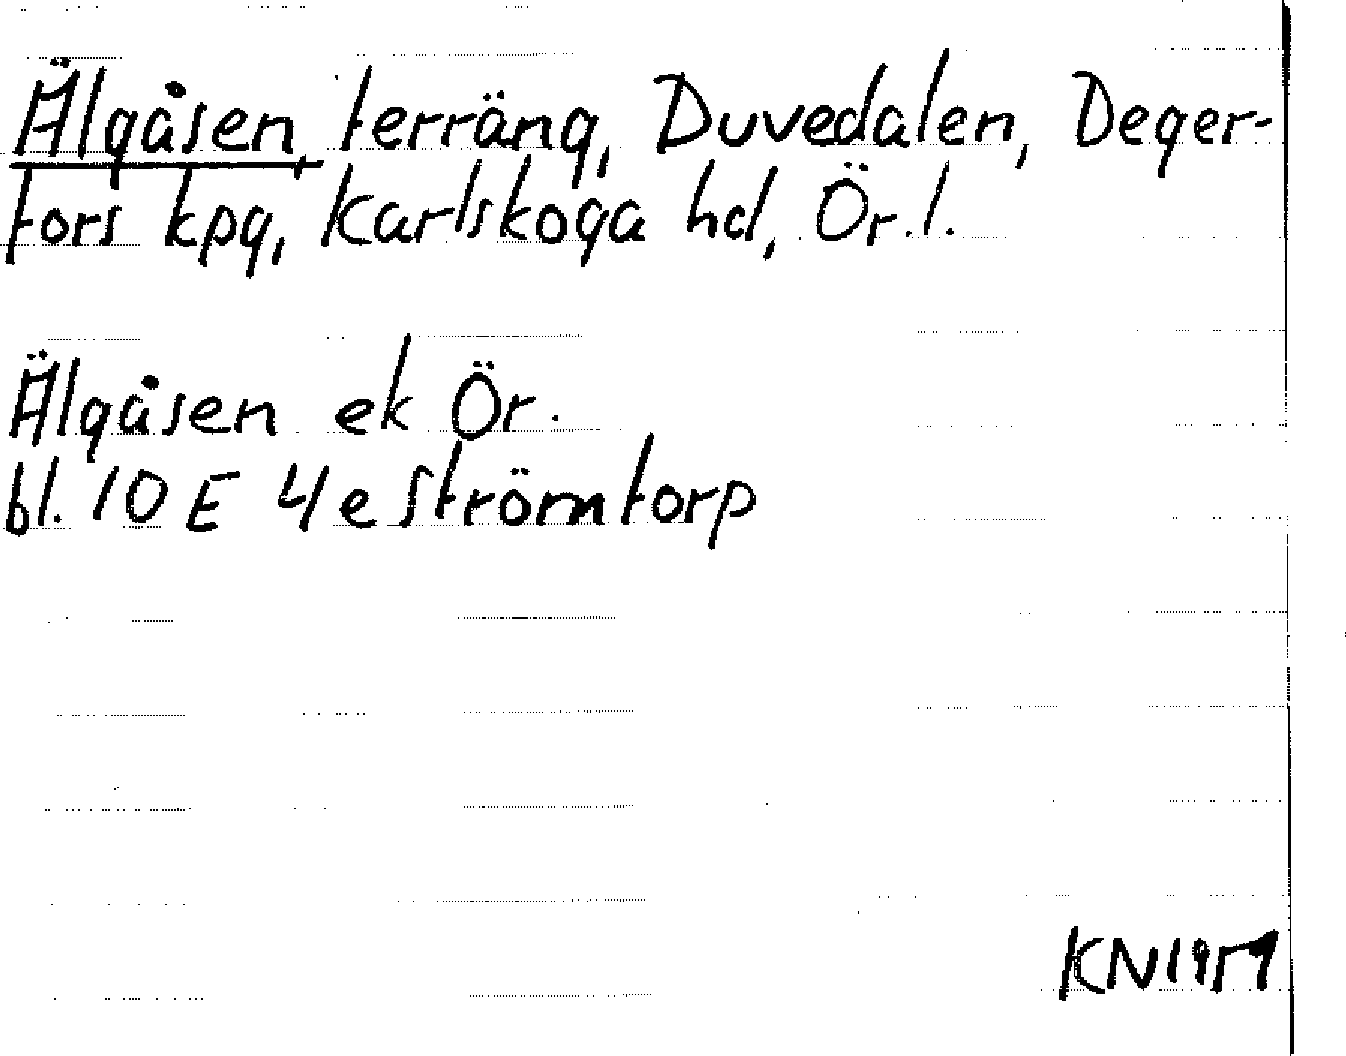 Älgåsen, terräng, Duvedalen, Deger-
fors kpg, Karlskoga hd, Ör.l.
Älgåsen ek Ör.
bl. 10 E 4e Strömtorp